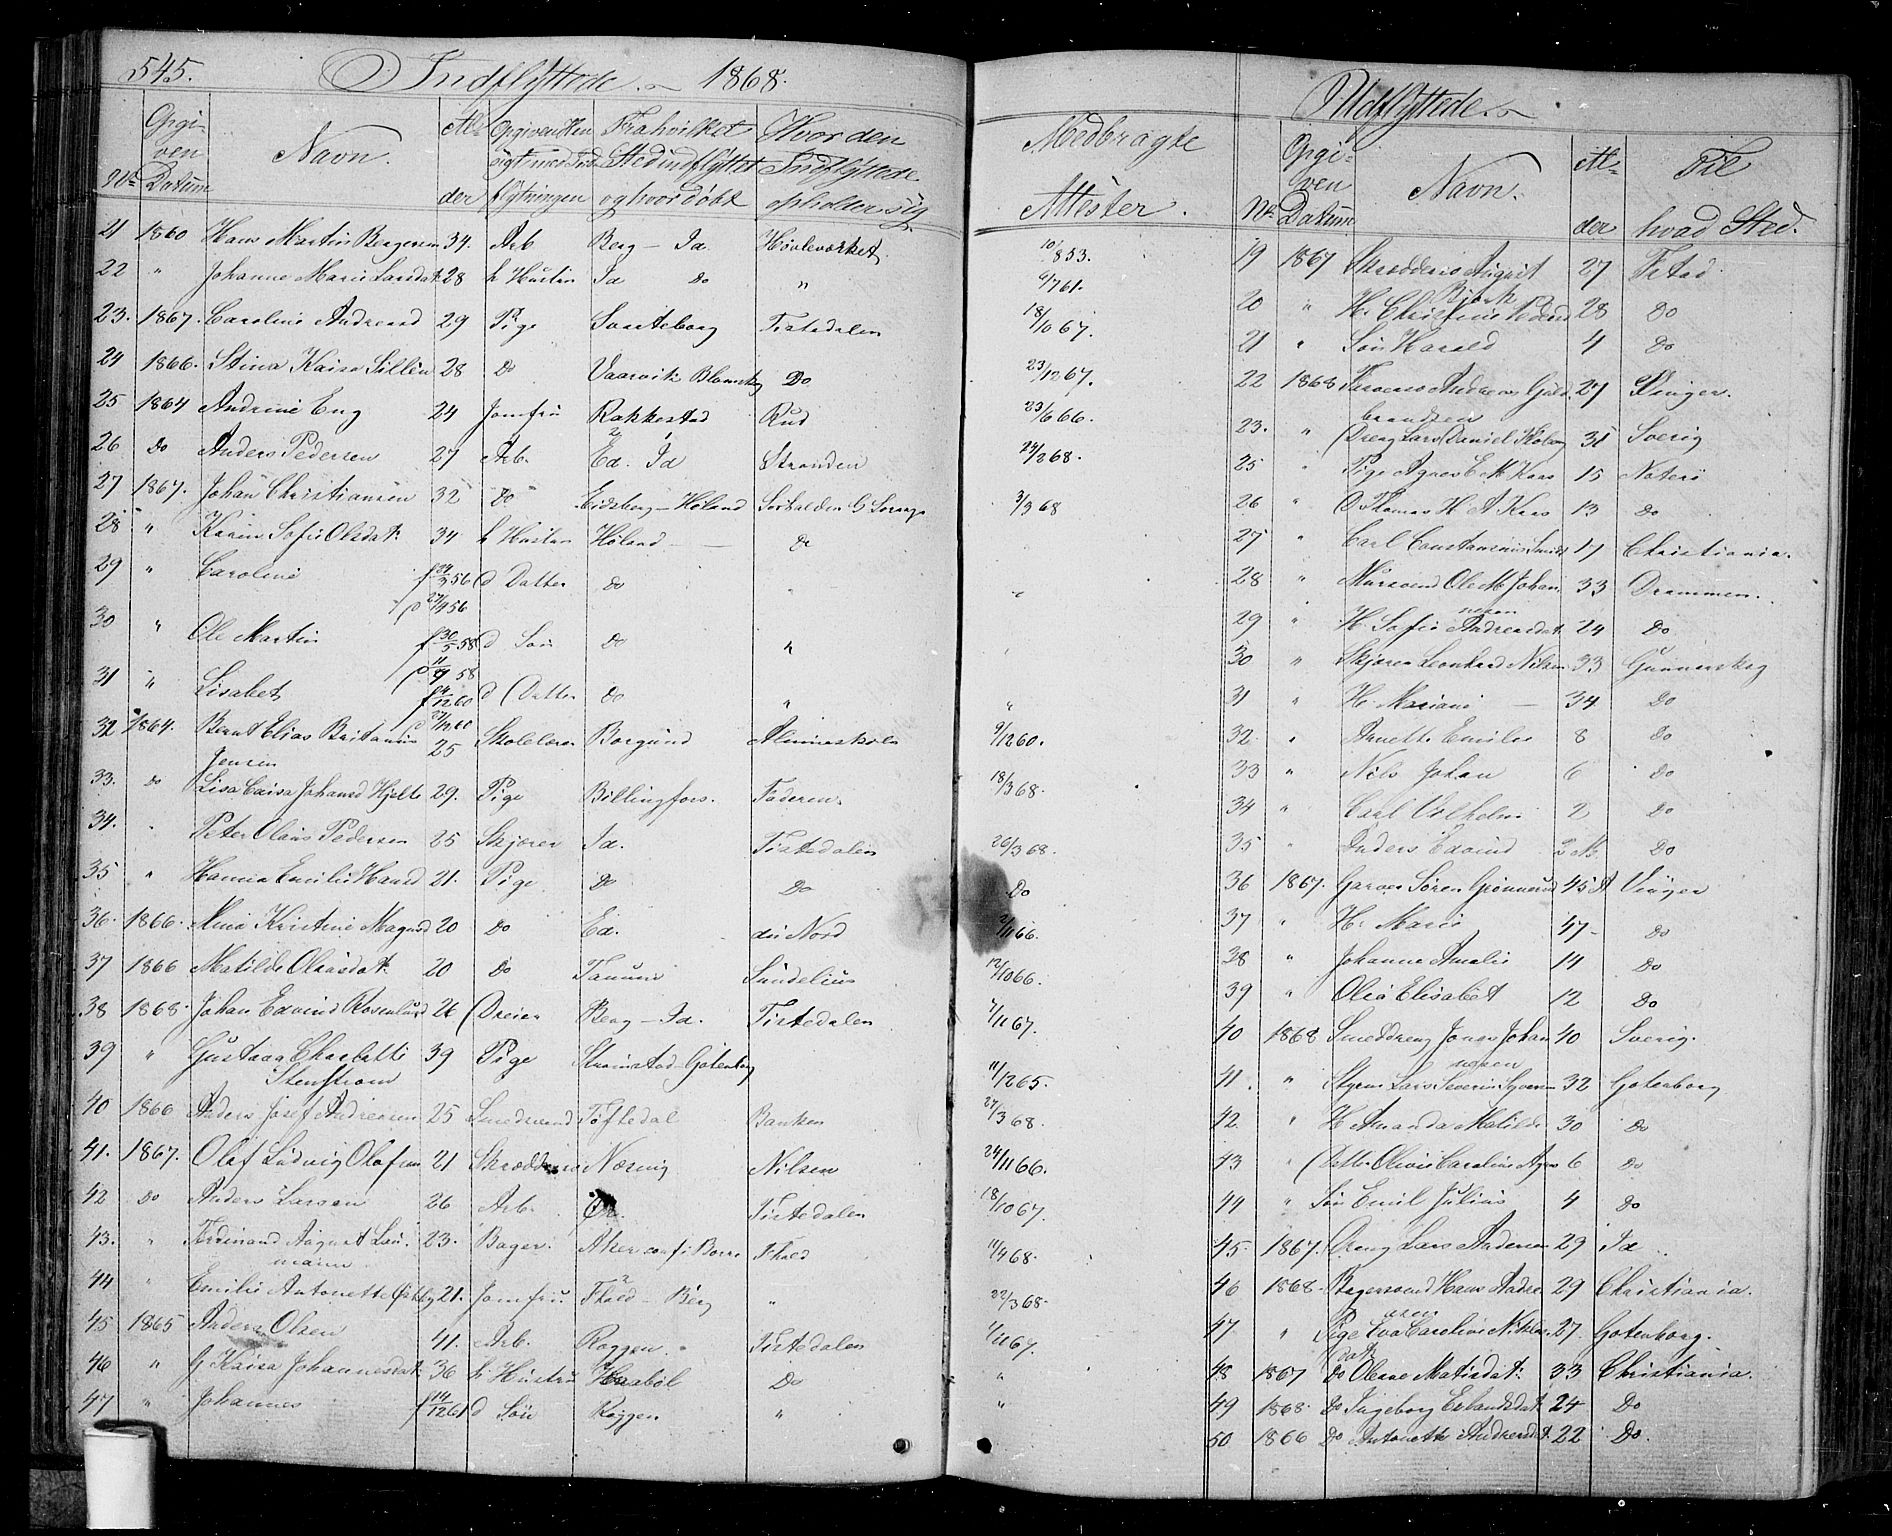 545.
Indflyttede. 1868.
No Opgiven Datum Navn. Alder Opgiven Hensigt med Indflytningen Fra hvilket Sted indflyttet og hvor døbt Hvor den Indflyttede opholder sig Medbragte Attester.
21 1860 Hans Martin Bergersen 34. Arb Berg – Id. Høvleværket. 10/853.
22 " Johanne Marie Larsdat: 28 h Hustru Id Do " 6/761.
23. 1867. Caroline Andreasd 29 Pige Tistedalen 18/1067.
24 1866. Stina Kaisa Sillen 28 Do Vaarvik Do 23/1267.
25 1864 Andrine Eng 24 Jomfru Rakkestad Rud 23/666.
26 Do Anders Pedersen 27 Arb. Ed. Id Stranden 24/268.
27 1867. Johan Christiansen 32 Do Eidsberg – Høland 3/368
28 " Karen Sofie Olsdat: 34 h Hustru Høland Do
29 " Caroline f 24/356 d Datter Do "
27/456
30 " Ole Martin f 30/558 d Søn Do "
11/958
31 " Lisabet f 14/1260 d Datter Do " "
27/1260
32 1864. Bernt Elias Britanius 25 Skolelærer Borgund Almueskolen 9/1260.
Jensen
33. Do Lisa Caisa Johansd Hjelte 29. Pige Billingsfors. Faderen 18/368.
34. Peter Olaus Pedersen 25 Skjører Id. Tistedalen 20/368.
35 " Hanna Emilie Haasd 21. Pige Do Do Do
36. 1866. Mina Kristine Magnusd 20 Do Ed. Nord 2/1166.
37 1866 Matilde Oliasdat: 20 Do Tanum Sundelius 12/1066.
38 1868. Johan Edvind Rosenlund 26 Dreier Berg – Id. Tistedalen 7/1167.
39 " Gustava Charlotte 39 Pige Strømstad – Gotenborg 11/1265.
Stenstrøm
40 1866 Anders Josef Andreasen 25 Smedsvend Töftedal Banken 27/368.
41. 1867. Olaf Ludvig Olafsen 21 Skrædder Næsvig Nilsen 24/1166.
42 Do Anders Larsen 26 Arb. Tistedalen 18/1067.
43. " Ferdinand August Lau- 23. Bager. Aker conf: Borre Fhald 11/468.
mann
44 " Emilie Antonette Østby 21. Jomfru. Fhald – Berg " 22/368.
45 1865 Anders Olsen 41. Arb. Roggen. Tistedalen 1/1167.
46 " G Kaisa Johannesdat. 36 h Hustru Haabøl Do "
47 " Johannes f 14/1261 d Søn Roggen " "
Udflyttede.
No Opgiven Datum Navn. Alder Til hvad Sted.
19 1867 Skrædders August 27 Fstad.
Bjørk
20 " H: Christine Peders 28 Do
21 " Søn Harald 4 Do
22 1868 Farversv Andreas Guld 27 Vinger.
brandsen
23. " Dreng Lars Daniel 31 Sverig
25 " Pige Agnes E M Kaas 15 Noterø
26 " D Thomas H A Kaas 13 Do
27 " Carl Constansius Smidt 17 Christiania.
28 " Mursvend Ole M Johan 33 Drammen.
nesen
29 " H Sofie Andreasdat: 24 Do
30 " Skjører Leonhard Nilsen 33 Gunnarskog
31 " H: Mariane 34 Do
32 " Anette Emilie 8 Do
33 " Nils Johan 6 Do
34 " Carl Vilhelm 2 Do
35 " Anders Edvind 2 M. Do
36 1867. Garver Søren Grønnerud 45 A Vinger
37 " H: Marie 47 Do
38 " Johanne Amalie 14 Do
39 " Olia Elisabet 12 Do
40 1868 Smeddreng Jonas Johan 40 Sverig.
nesen
41. " Styrm Lars Severin Syversen 32 Gotenborg
42 " H Amanda Matilde 30 Do
43 " Datter Olivie Caroline Agnes 6 Do
44 " Søn Emil Julius 4 Do
45. 1867. Dreng Lars Andersen 29 Id
46 1868. Bagersvend Hans Andre 29 Christiania.
asen
47 " Pige Eva Caroline Niklas 27. Gotenborg.
dat:
48 1867 Do Olerne Matisdat: 33 Christiania.
49 1868. Do Ingeborg Erlandsdat: 24 Do
50 1866 Do Antonette Andreasdat: 22 Do.